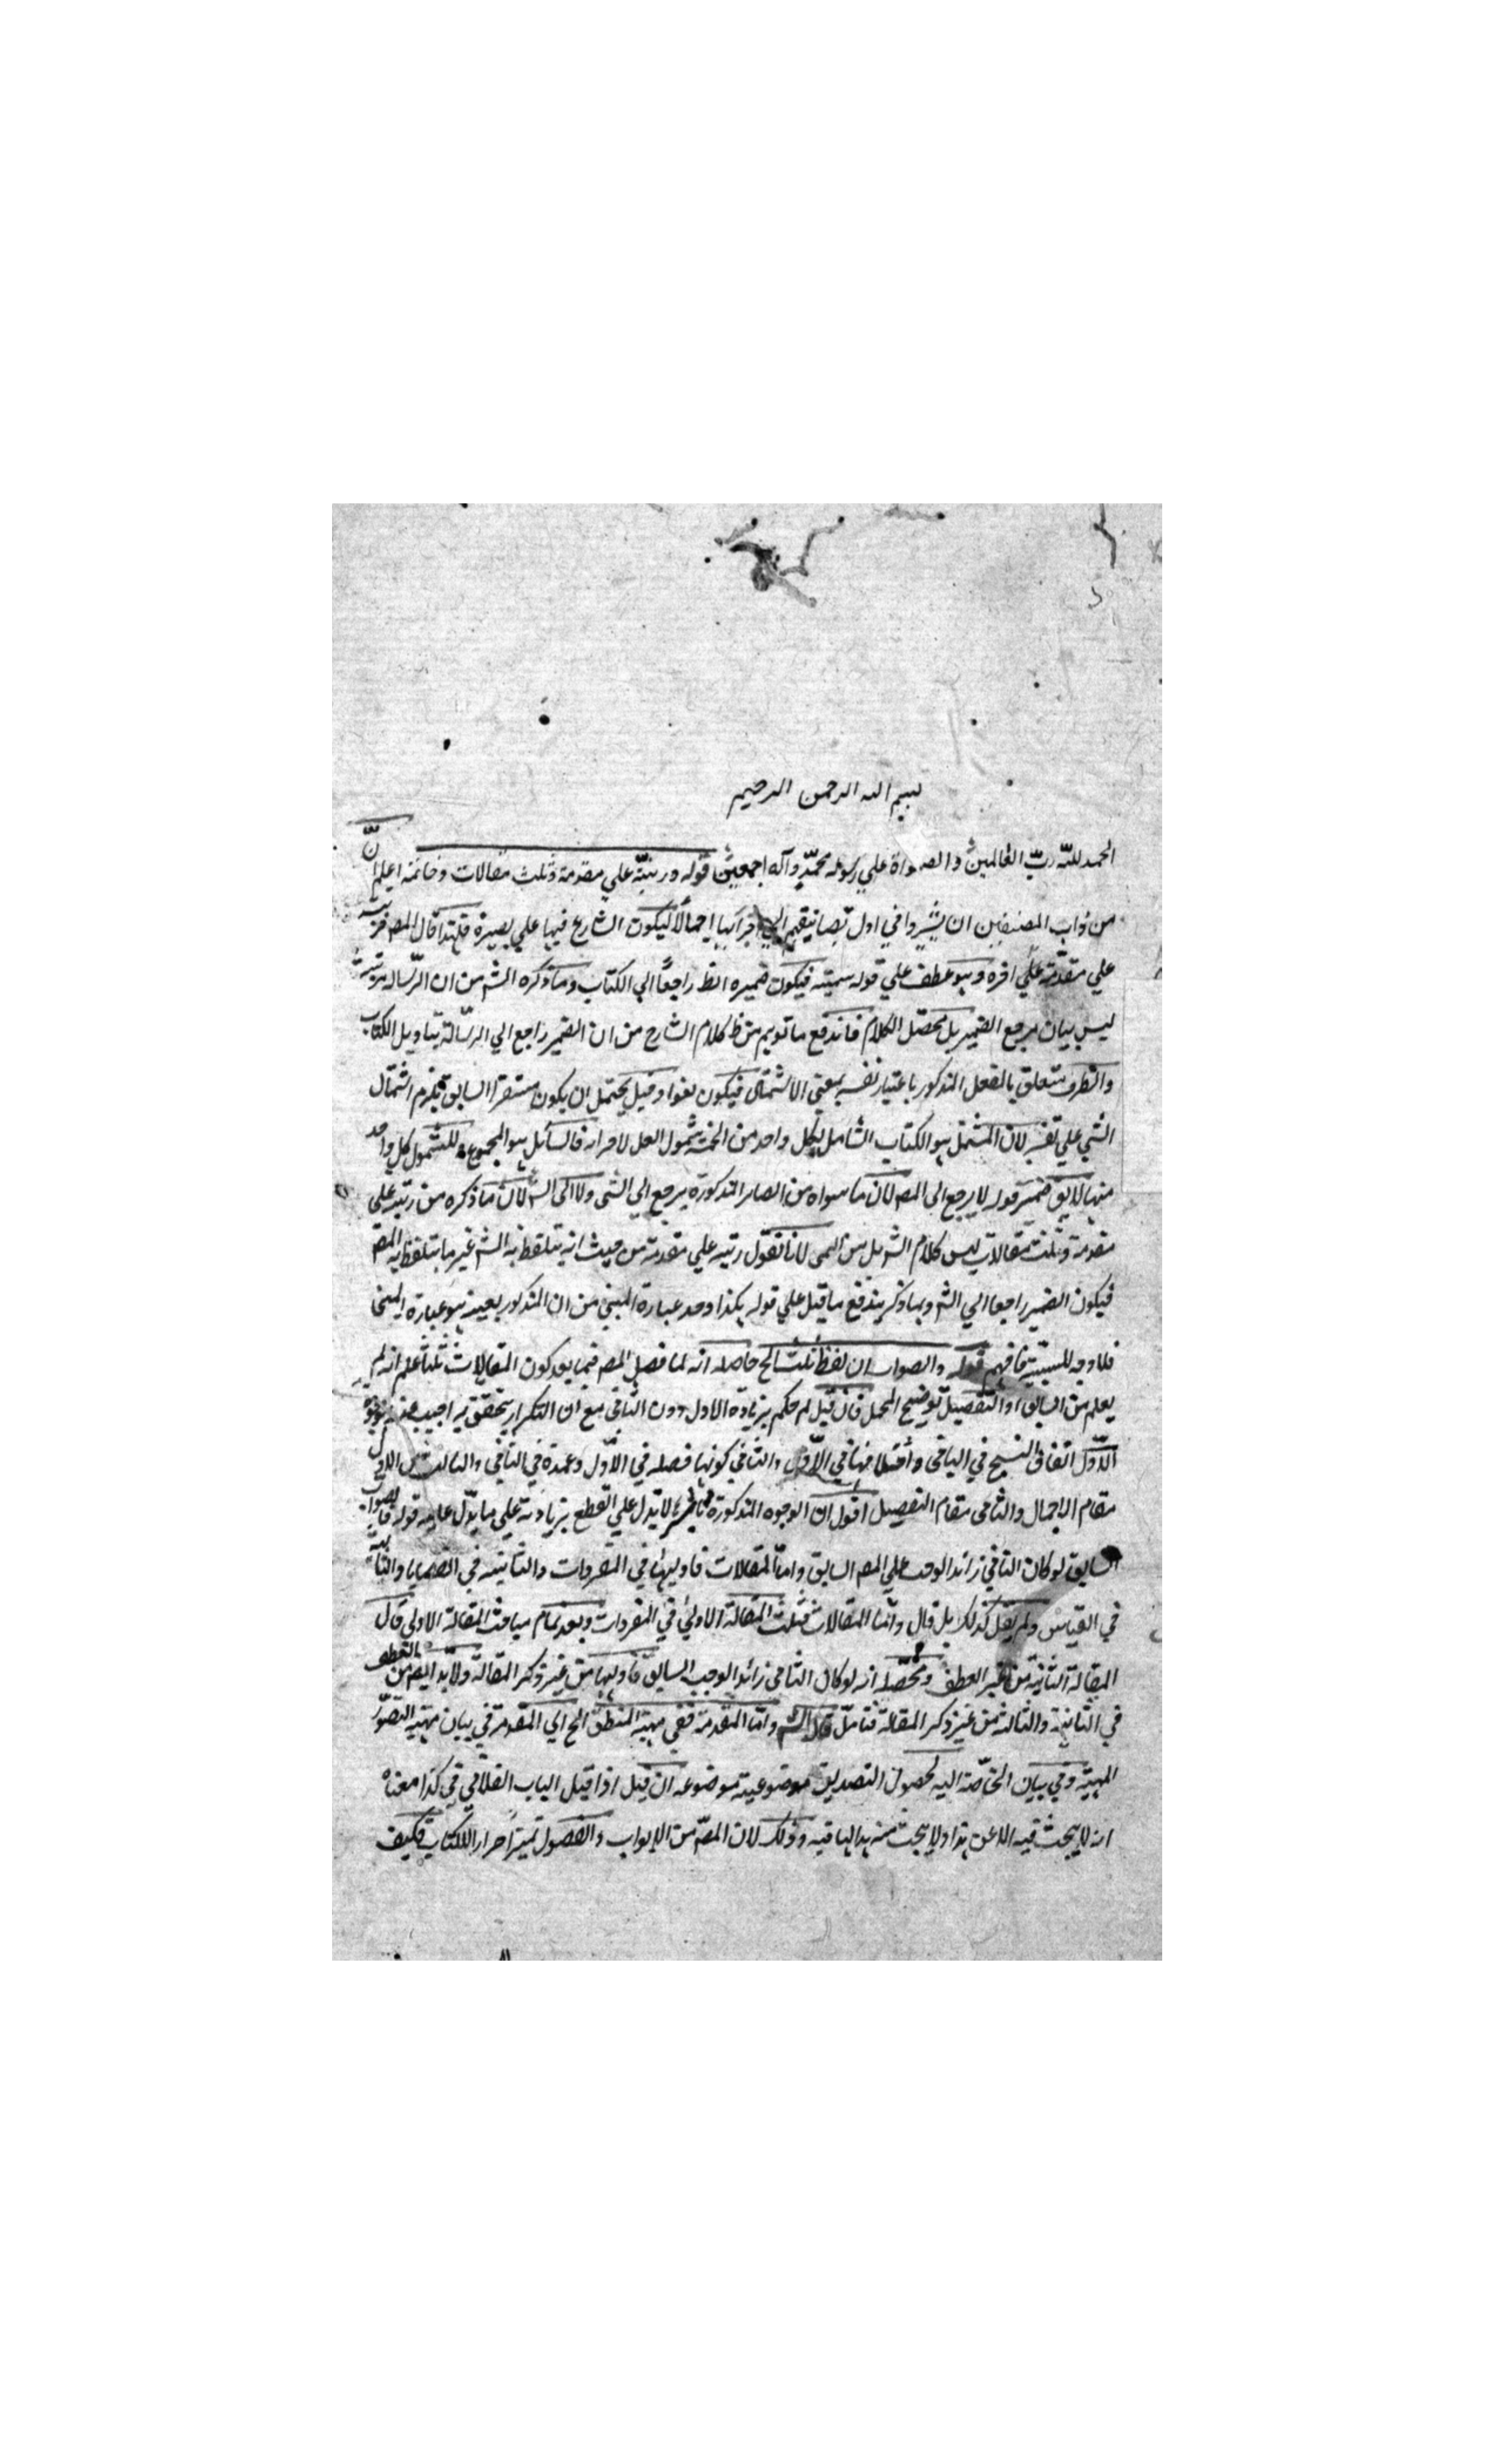 بسم الله الرحمن الرحيم
الحمد لله ربّ العالمين والصلواة علي رسوله محمّد وآله اجمعين قوله ورتبته علي مقدمة وثلث مقالات وخاتمه اعلم انّ
من داب المصنفين ان يشيروا في اول تصانيفهم الي اجزائها اجمالًا ليكون الشارع فيها علي بصيرة فلهذا قال المص
علي مقدّمة علي اخره وهو عطف علي قوله سميته فيكون ضميره ايظ راجعًا الي الكتاب وما ذكره الش من ان الرّسالة مرتبة
ليس بيان مرجع الضمير بل محصّل الكلام فاندفع ما توهم من ظ كلام الشارح من ان الضمير راجع الي الرسالة بتاويل الكتاب
والظرف متعلق بالفعل المذكور باعتبار نفسه بمعني الاشتمال فيكون لغوا وقيل يحتمل ان يكون مستقرا السابق يلزم اشتمال
الشي علي نفسه لان المشتمل هو الكتاب الشامل لكل واحد من الخمسة شمول الكل لاجزائه هو المجموع للشمول كل واحد
منها لايق ضمير قوله لا يرجع الي المص لان ما سواه من الضماير المذكورة يرجع الي ولا الي الش لان ما ذكره من رتبه علي
مقدمة وثلث مقالات ليس كلام الش بل من لانا نقول رتبه علي مقدمة من حيث انه يتلفظ به الش غير ما يتلفظ به المص
فيكون الضمير راجعا الي الش وبما ذكر يندفع ما قيل علي قوله هكذا وجد عبارة المتن من ان المذكور بعينه هو عبارة المتن
فلا وجه فافهم قوله والصواب ان لفظ ثلث الخ حاصله انه لما فصل المص فيما بعد كون المقالات ثلثا علم انه لم
يعلم من السابق او التفصيل توضيح المجمل فان قيل لم حكم بزيادة الاول دون الثاني مع ان التكرار تحقق به اجيب عنه بوجوه
الاوّل اتفاق النسخ في الباقي في الاول والثاني كونها فضله في الاوّل وعمدة في الثاني والثالث الاول
مقام الاجمال والثاني مقام التفصيل اقول ان الوجوه المذكورة لا يدل علي القطع بزيادته علي ما يدّل عليه قوله فالصواب
السابق لو كان الثاني زائدا لوجب علي المص السابق وامّا المقالات فاوليها في المفردات والثانيه في القضايا والثالثة
في القياس ولم يقل كذلك بل قال وامّا المقالات فثلث المقالة الاولي في المفردات وبعد تمام مباحث المقالة الاولي قال
المقالة الثانية من غير العطف ومحصّله انه لو كان الثاني زائدا لوجب السابق فاوليها من غير ذكر المقالة ولا بد ايض من العطف
في الثانية والثالثة من غير ذكر المقالة فتامّل قال الش وامّا المقدمة ففي مهية المنطق الخ اي المقدمة في بيان مهية التصوّر
المهيّة وفي بيان الحاجة اليه لحصول التصديق بموضوعية موضوعه ان قيل اذا قيل الباب الفلاني في كذا معناه
انه لا يبحث فيه الا عن هذا ولا يبحث منه وذلك لان المصّ من الابواب والفصول فكيف